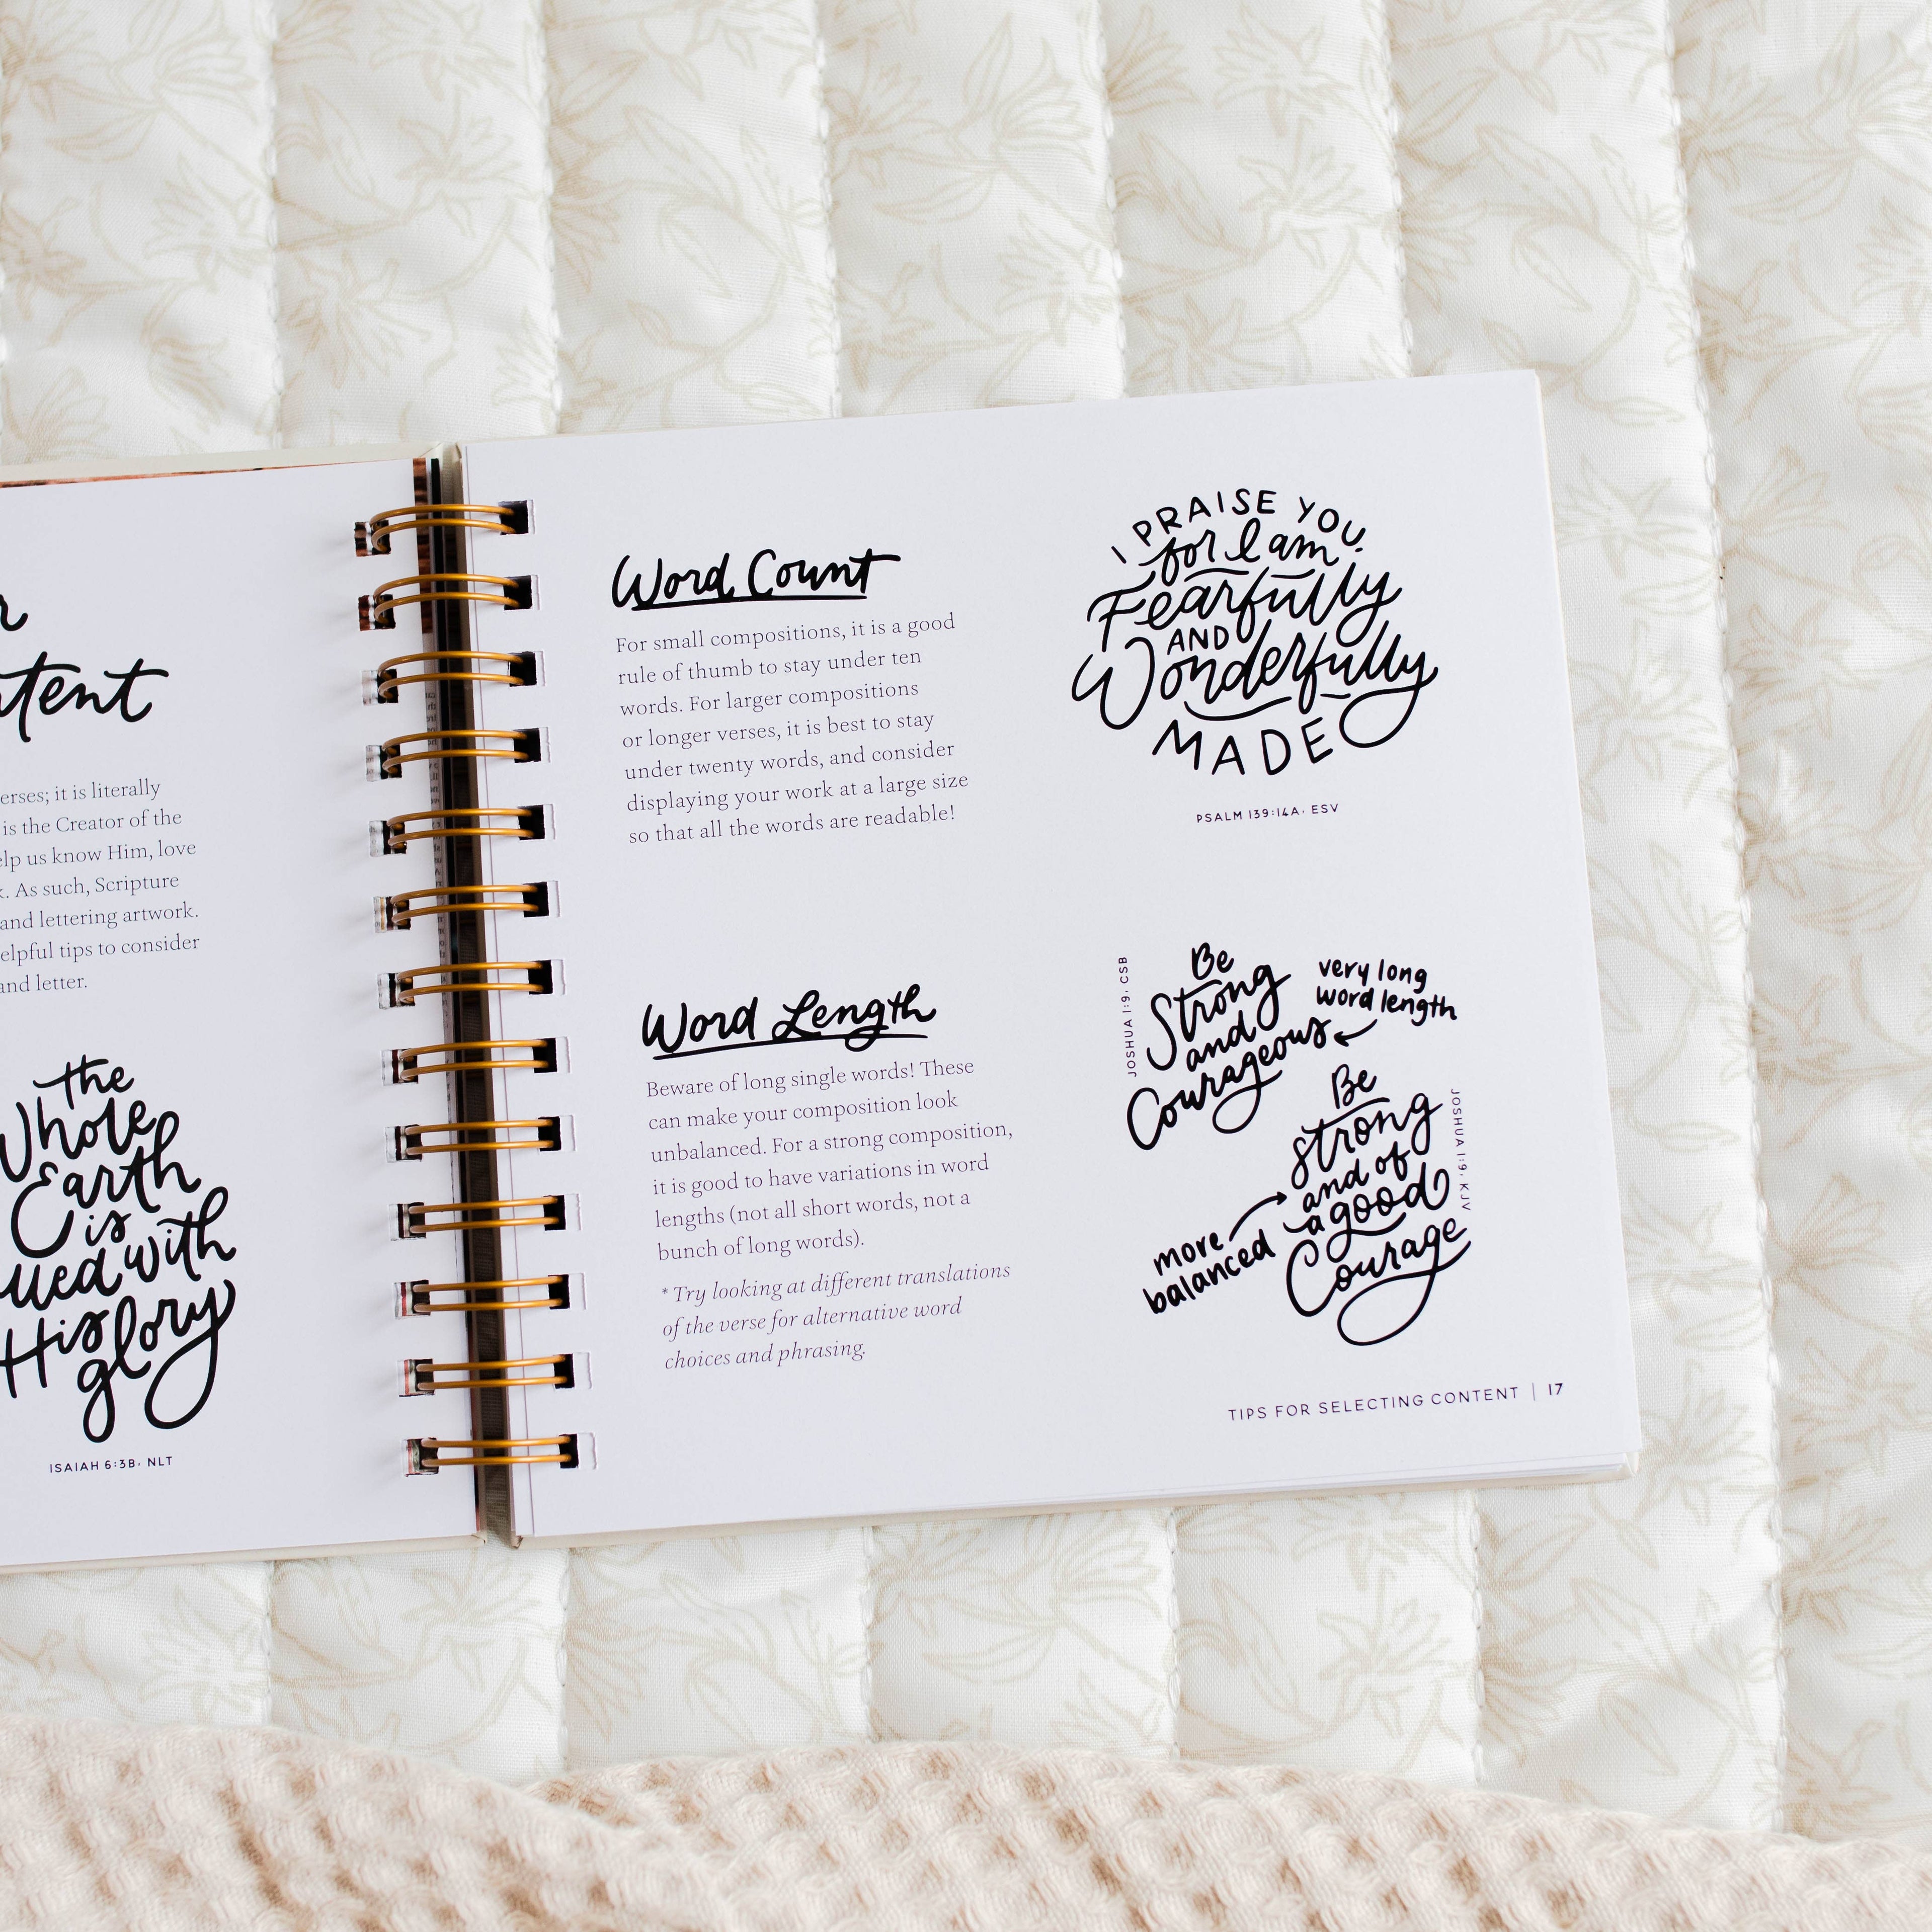 tent
erses; it is literally
is the Creator of the
elp us know Him, love
. As such, Scripture
and lettering artwork.
elpful tips to consider
and letter.
the
Whole
Earth
is
lled with
His
glory
ISAIAH 6:3B, NLT
Word Count
For small compositions, it is a good
rule of thumb to stay under ten
words. For larger compositions
or longer verses, it is best to stay
under twenty words, and consider
displaying your work at a large size
so that all the words are readable!
I PRAISE YOU
for I am
Fearfully
AND
Wonderfully
MADE
PSALM 139:14A, ESV
Word Length
Beware of long single words! These
can make your composition look
unbalanced. For a strong composition,
it is good to have variations in word
lengths (not all short words, not a
bunch of long words).
* Try looking at different translations
of the verse for alternative word
choices and phrasing.
JOSHUA 1:9, CSB
Be
Strong
and
Courageous
very long
word length
Be
strong
and of
a good
Courage
JOSHUA 1:9, KJV
more
balanced
TIPS FOR SELECTING CONTENT | 17